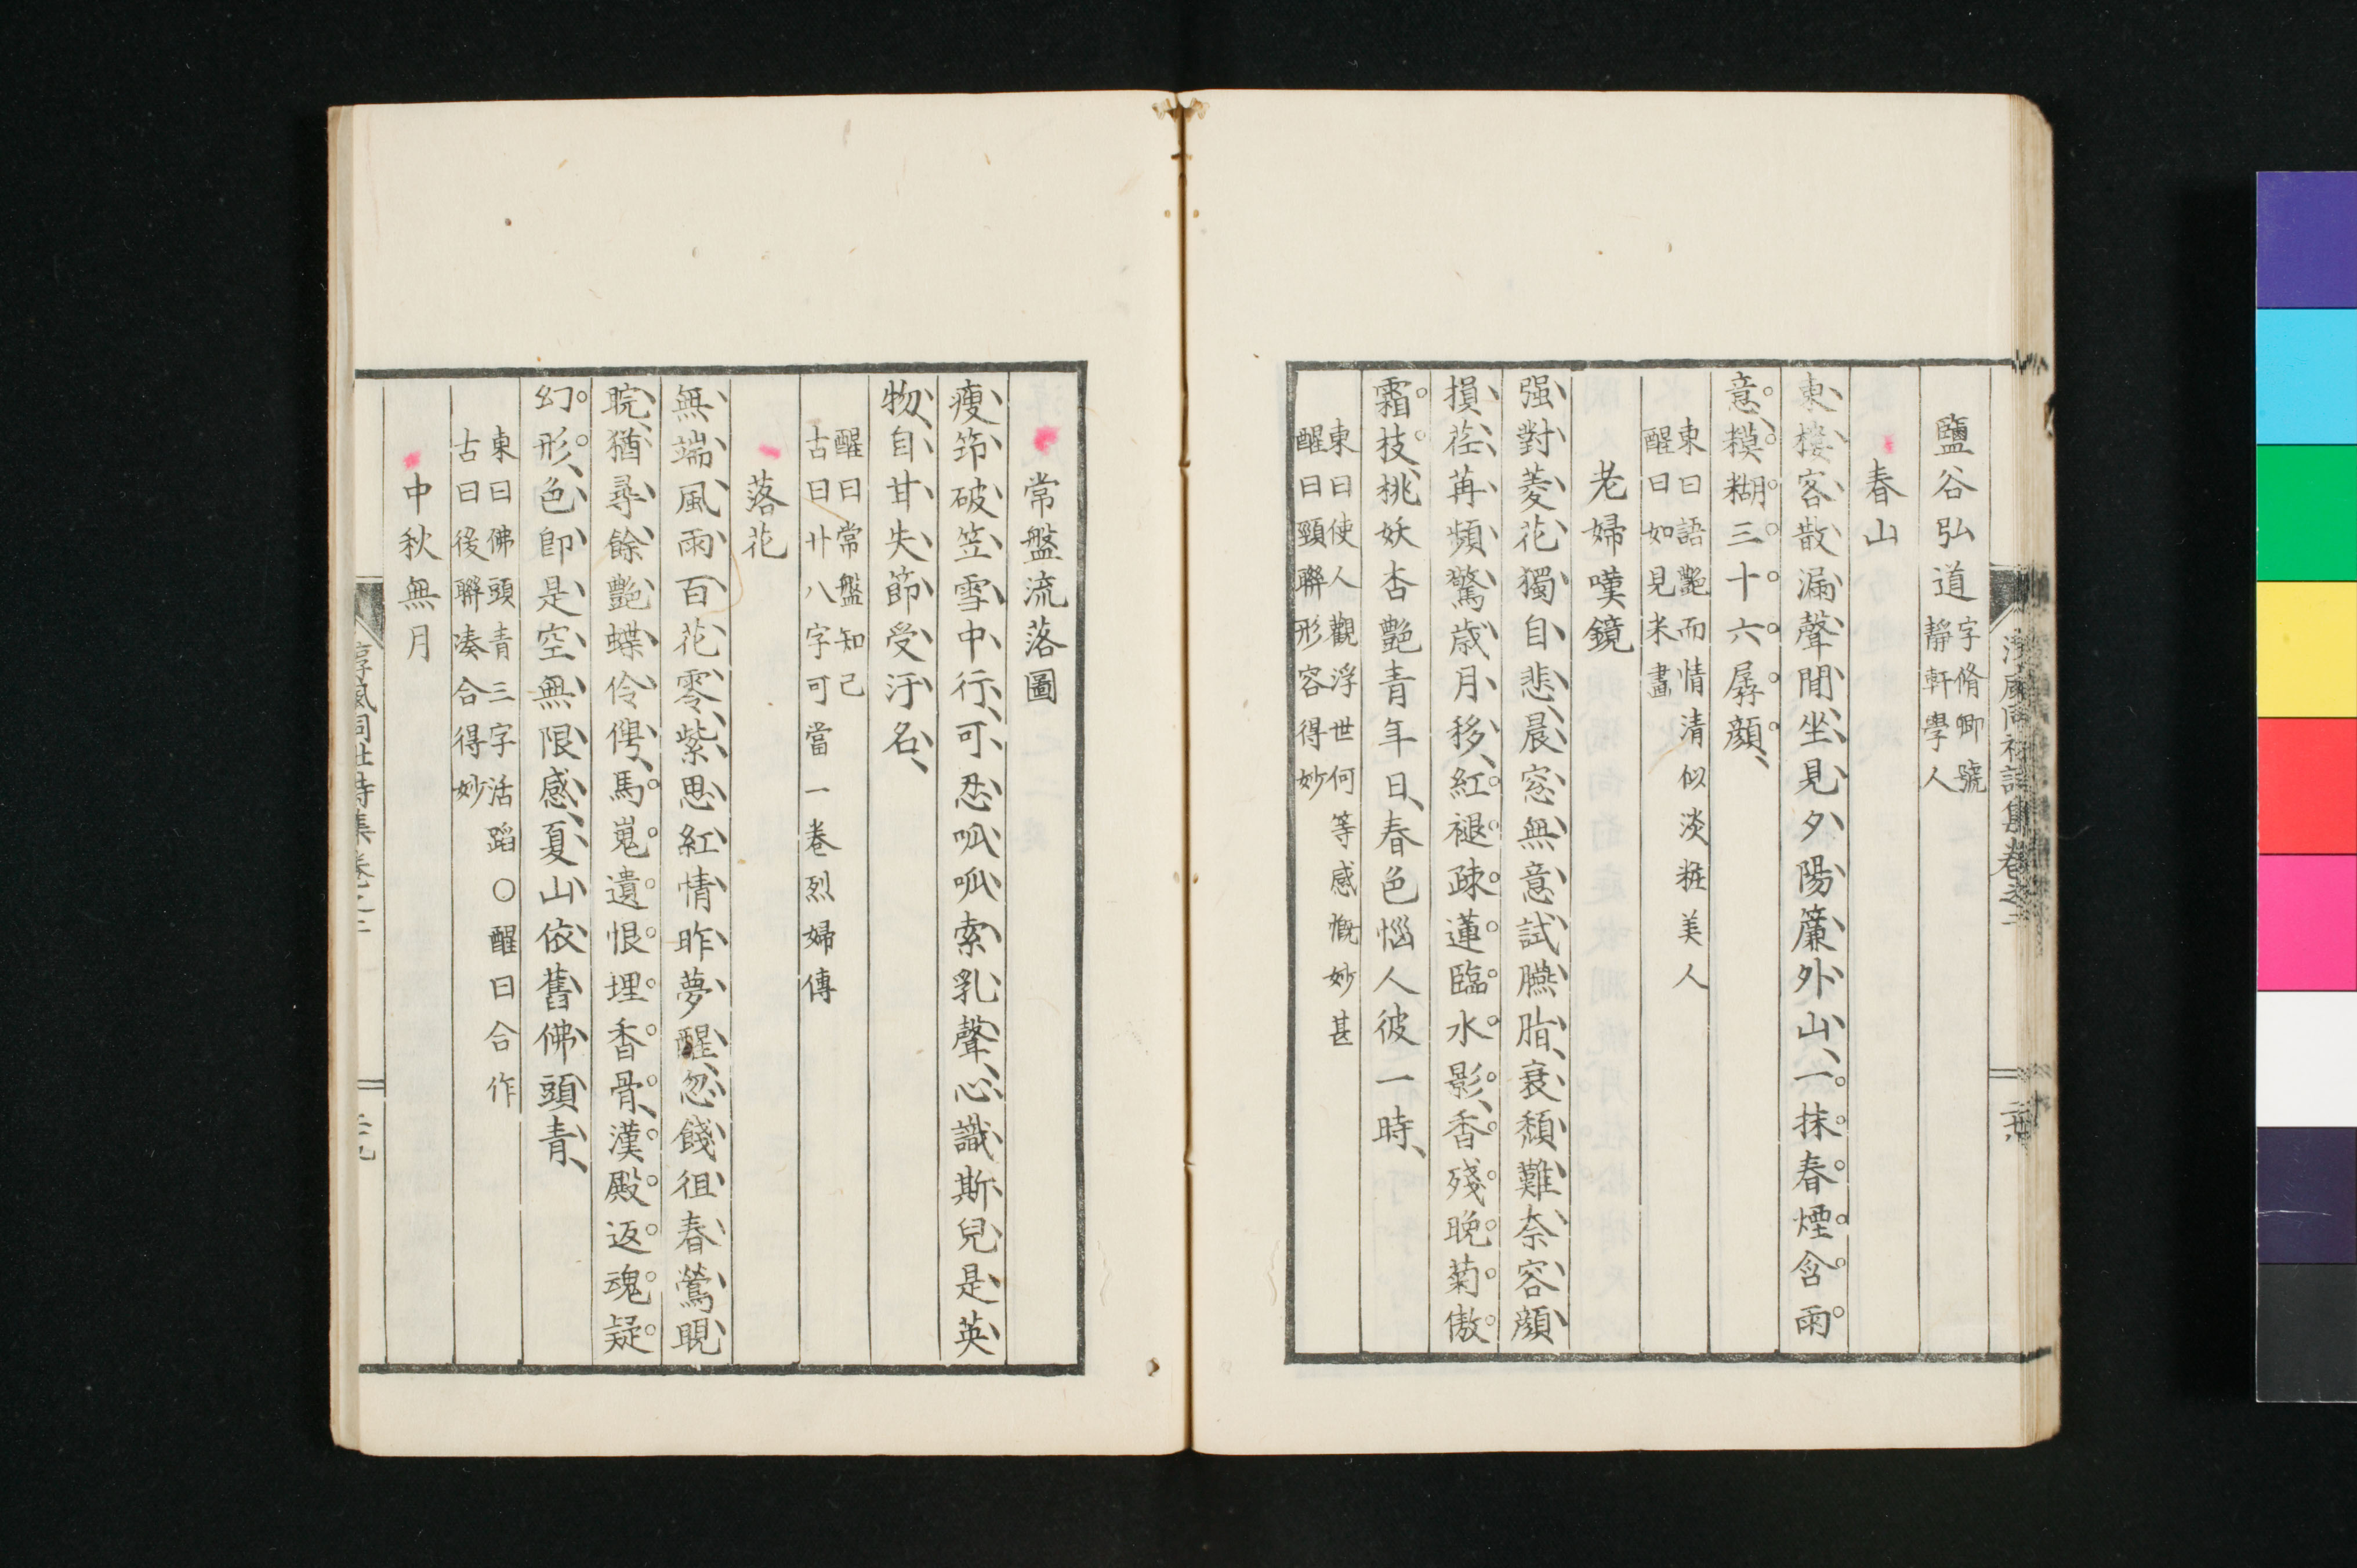 鹽谷弘道字脩卿號
靜軒學人
春山
東樓客散漏聲閒、坐見夕陽簾外山、一抹春煙含雨
意、糢糊三十六孱顔、
東曰語艷而情清似淡粧美人
醒曰如見米畫
老婦嘆鏡
强對菱花獨自悲、晨窓無意試臙脂、衰頽難奈容顔
損、荏苒頻驚歳月移、紅褪疎蓮臨水影、香殘晩菊傲
霜枝、桃妖杏艷靑年日、春色惱人彼一時、
東曰使人觀浮世何等感慨妙甚
醒曰頸聯形容得妙
常盤流落圖
瘦筇破笠雪中行、可忍呱呱索乳聲、心識斯兒是英
物、自甘失節受汙名、
醒曰常盤知己
古曰廿八字可當一卷烈婦傳
落花
無端風雨百花零、紫思紅情昨夢醒、忽餞徂春鶯睍
睆、猶尋餘艷蝶伶俜、馬嵬遺恨埋香骨、漢殿返魂疑
幻形、色卽是空無限感、夏山依舊佛頭靑、
東曰佛頭靑三字活蹈〇醒曰合作
古曰後聯湊合得妙
中秋無月